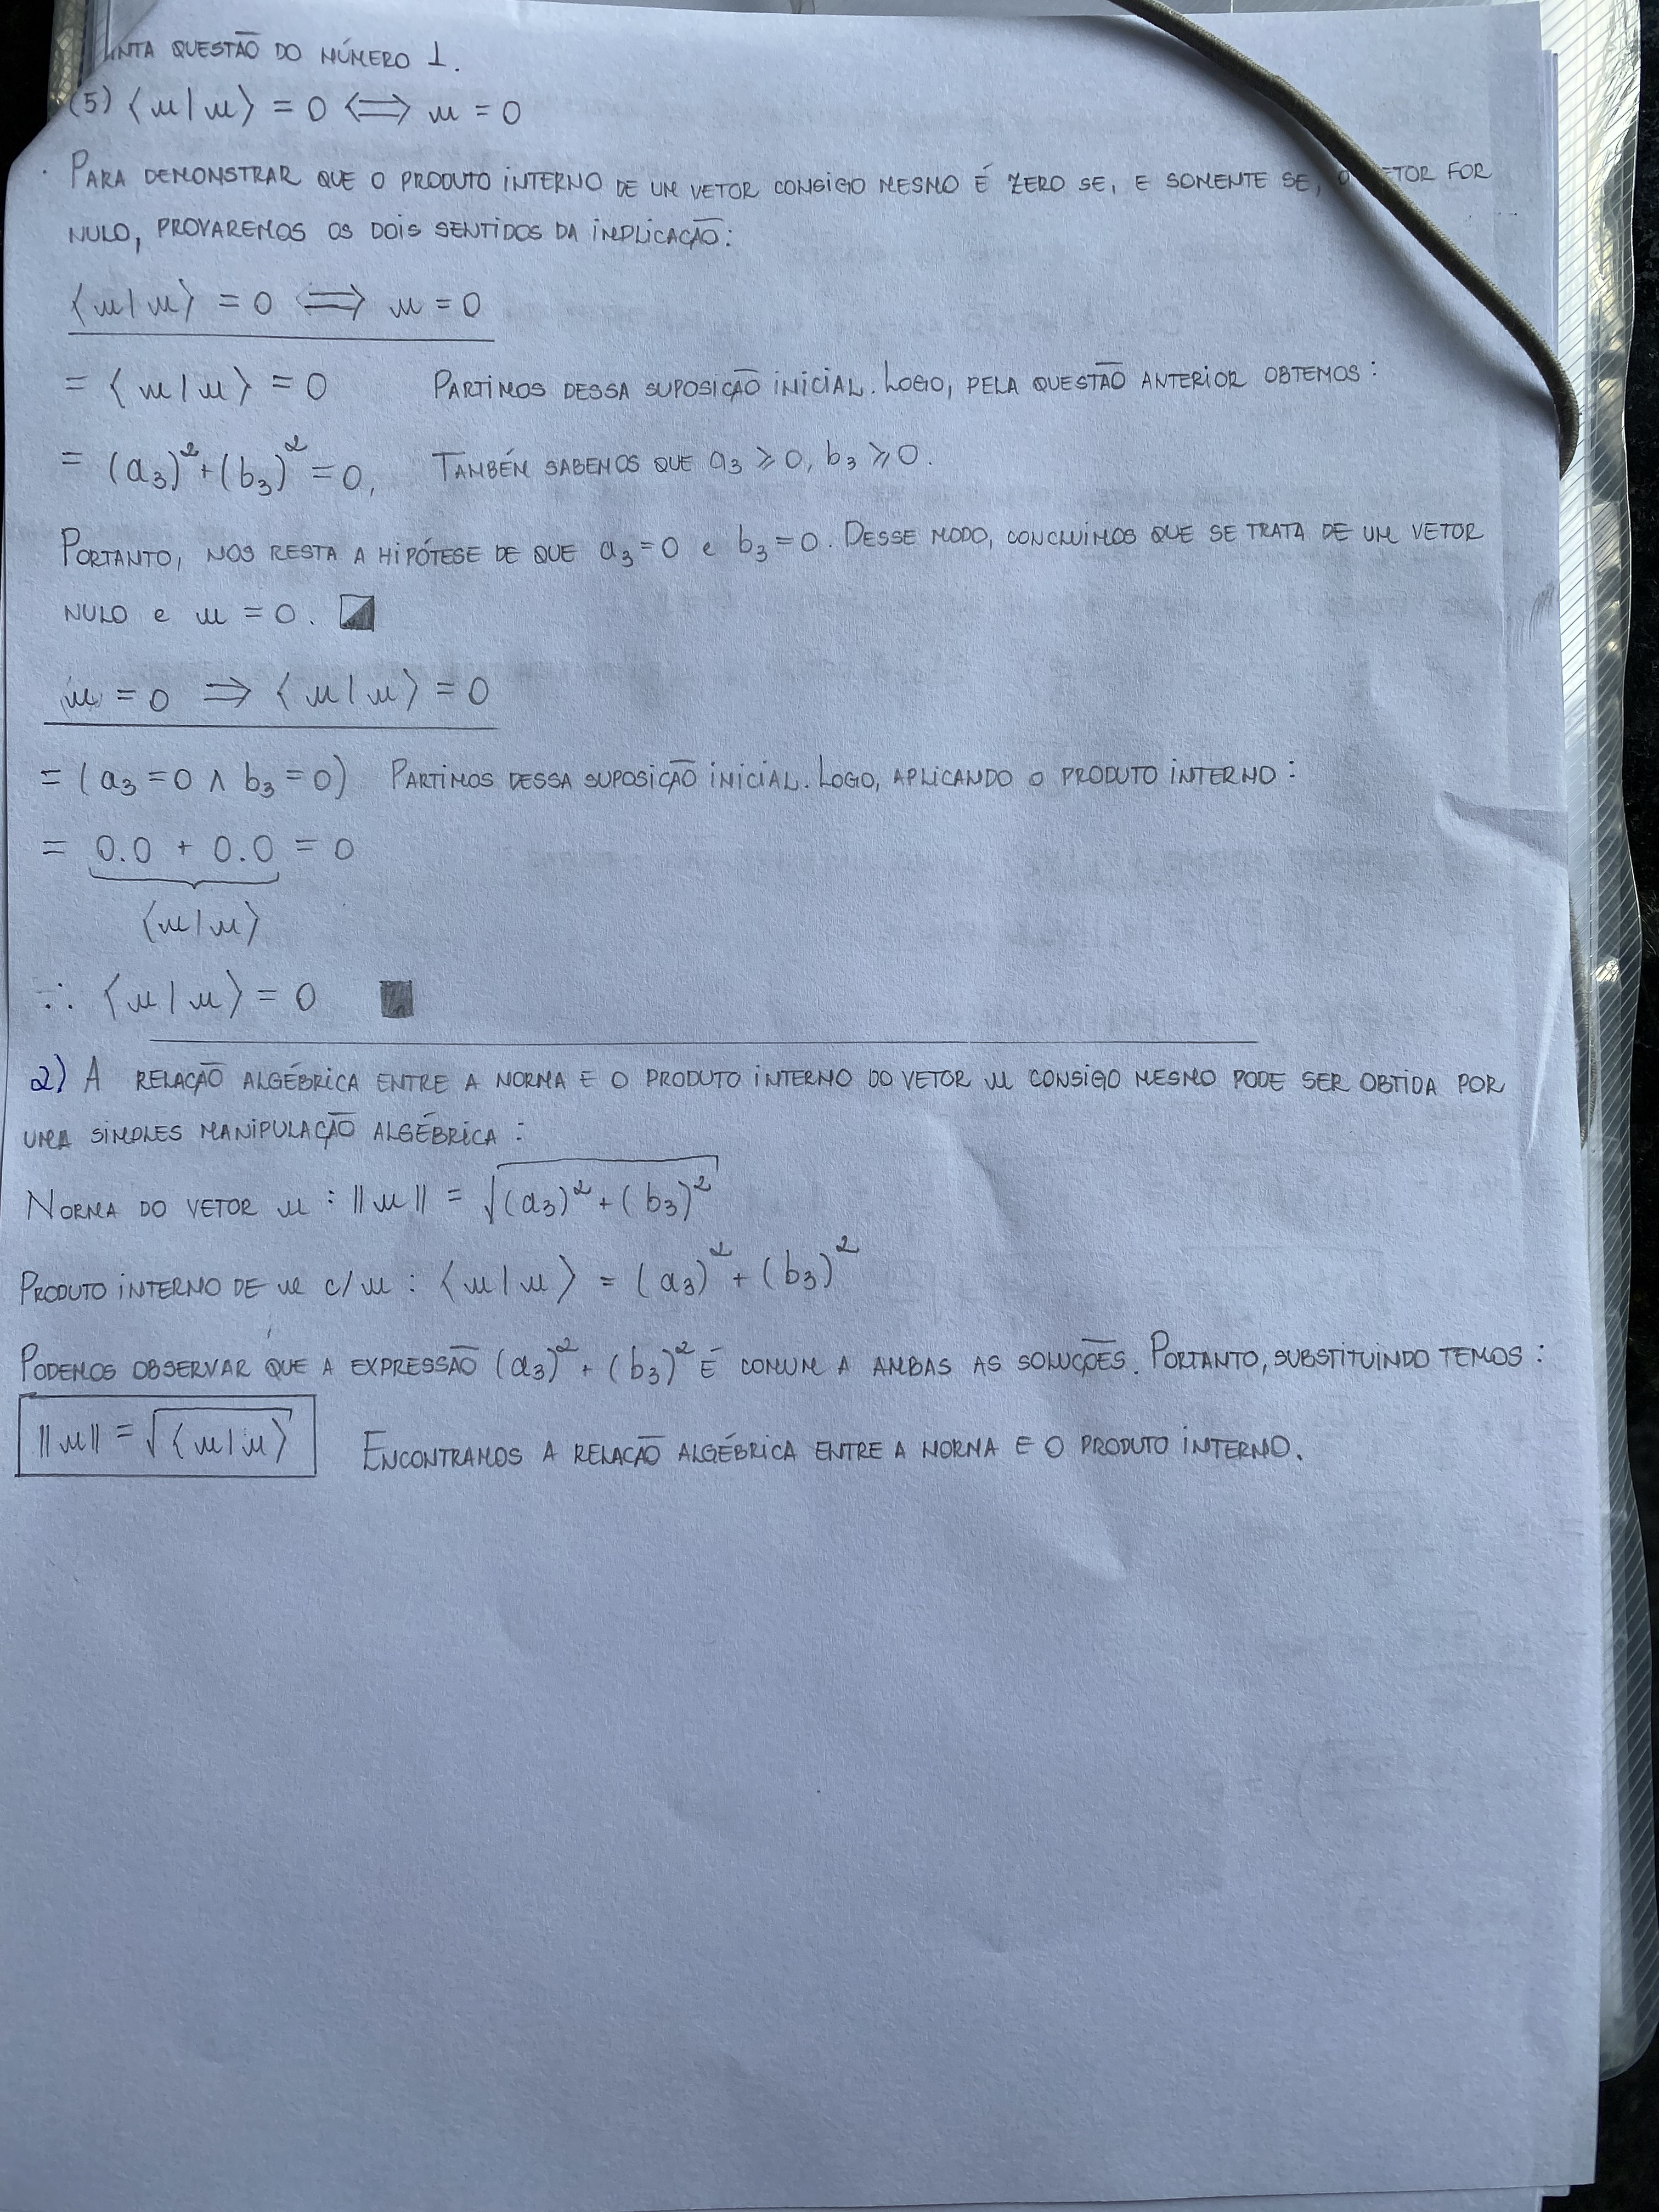 QUESTÃO DO NÚMERO 1.
(5) ⟨u|u⟩ = 0 ⟺ u = 0
· PARA DEMONSTRAR QUE O PRODUTO INTERNO DE UM VETOR CONSIGO MESMO É ZERO SE, E SOMENTE SE, O VETOR FOR
NULO, PROVAREMOS OS DOIS SENTIDOS DA IMPLICAÇÃO:
⟨u|u⟩ = 0 ⟺ u = 0
= ⟨u|u⟩ = 0 PARTIMOS DESSA SUPOSIÇÃO INICIAL. LOGO, PELA QUESTÃO ANTERIOR OBTEMOS:
= (a₃)² + (b₃)² = 0, TAMBÉM SABEMOS QUE a₃ ⩾ 0, b₃ ⩾ 0.
PORTANTO, NOS RESTA A HIPÓTESE DE QUE a₃ = 0 e b₃ = 0. DESSE MODO, CONCLUÍMOS QUE SE TRATA DE UM VETOR
NULO e u = 0.
u = 0 ⟹ ⟨u|u⟩ = 0
= (a₃ = 0 ∧ b₃ = 0) PARTIMOS DESSA SUPOSIÇÃO INICIAL. LOGO, APLICANDO O PRODUTO INTERNO:
= 0.0 + 0.0 = 0
⟨u|u⟩
∴ ⟨u|u⟩ = 0 ■
2) A RELAÇÃO ALGÉBRICA ENTRE A NORMA E O PRODUTO INTERNO DO VETOR u CONSIGO MESMO PODE SER OBTIDA POR
UMA SIMPLES MANIPULAÇÃO ALGÉBRICA:
NORMA DO VETOR u : ||u|| = √((a₃)² + (b₃)²)
PRODUTO INTERNO DE u c/ u : ⟨u|u⟩ = (a₃)² + (b₃)²
PODEMOS OBSERVAR QUE A EXPRESSÃO (a₃)² + (b₃)² É COMUM A AMBAS AS SOLUÇÕES. PORTANTO, SUBSTITUINDO TEMOS:
||u|| = √⟨u|u⟩ ENCONTRAMOS A RELAÇÃO ALGÉBRICA ENTRE A NORMA E O PRODUTO INTERNO.